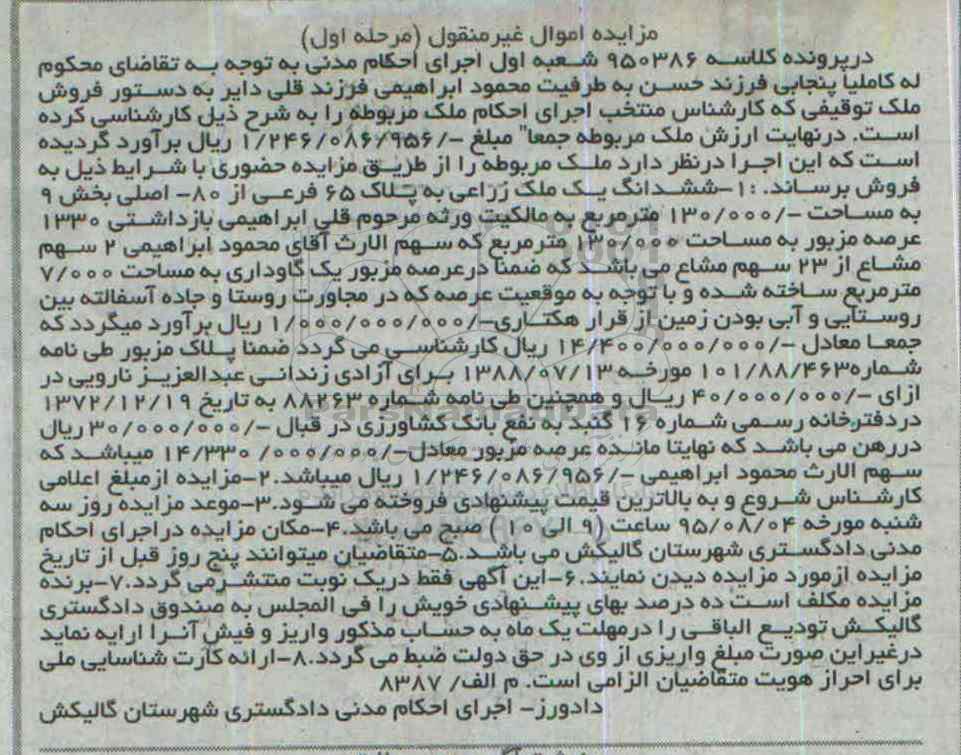 مزایده اموال غیرمنقول (مرحله اول)
درپرونده کلاسه ۹۵۰۳۸۶ شعبه اول اجرای احکام مدنی به توجه به تقاضای محکوم
له کاملیا پنجابی فرزند حسن به طرفیت محمود ابراهیمی فرزند قلی دایر به دستور فروش
ملک توقیفی که کارشناس منتخب اجرای احکام ملک مربوطه را به شرح ذیل کارشناسی کرده
است. درنهایت ارزش ملک مربوطه جمعا" مبلغ -/۱/۲۴۶/۰۸۶/۹۵۶ ریال برآورد گردیده
است که این اجرا درنظر دارد ملک مربوطه را از طریق مزایده حضوری با شرایط ذیل به
فروش برساند. :۱-ششدانگ یک ملک زراعی به پلاک ۶۵ فرعی از ۸۰- اصلی بخش ۹
به مساحت -/۱۳۰/۰۰۰ مترمربع به مالکیت ورثه مرحوم قلی ابراهیمی بازداشتی ۱۳۳۰
عرصه مزبور به مساحت ۱۳۰/۰۰۰ مترمربع که سهم الارث آقای محمود ابراهیمی ۲ سهم
مشاع از ۲۳ سهم مشاع می باشد که ضمنا درعرصه مزبور یک گاوداری به مساحت ۷/۰۰۰
مترمربع ساخته شده و با توجه به موقعیت عرصه که در مجاورت روستا و جاده آسفالته بین
روستایی و آبی بودن زمین از قرار هکتاری-/۱/۰۰۰/۰۰۰/۰۰۰ ریال برآورد میگردد که
جمعا معادل -/۱۴/۴۰۰/۰۰۰/۰۰۰ ریال کارشناسی می گردد ضمنا پلاک مزبور طی نامه
شماره۱۰۱/۸۸/۴۶۳ مورخه ۱۳۸۸/۰۷/۱۳ برای آزادی زندانی عبدالعزیز نارویی در
ازای -/۴۰/۰۰۰/۰۰۰ ریال و همچنین طی نامه شماره ۸۸۲۶۳ به تاریخ ۱۳۷۲/۱۲/۱۹
دردفترخانه رسمی شماره ۱۶ گنبد به نفع بانک کشاورزی در قبال -/۳۰/۰۰۰/۰۰۰ ریال
دررهن می باشد که نهایتا مانده عرصه مزبور معادل-/۱۴/۳۳۰ /۰۰۰/۰۰۰ میباشد که
سهم الارث محمود ابراهیمی -/۱/۲۴۶/۰۸۶/۹۵۶ ریال میباشد.۲-مزایده ازمبلغ اعلامی
کارشناس شروع و به بالاترین قیمت پیشنهادی فروخته می شود.۳-موعد مزایده روز سه
شنبه مورخه ۹۵/۰۸/۰۴ ساعت (۹ الی ۱۰) صبح می باشد.۴-مکان مزایده دراجرای احکام
مدنی دادگستری شهرستان گالیکش می باشد.۵-متقاضیان میتوانند پنج روز قبل از تاریخ
مزایده ازمورد مزایده دیدن نمایند.۶-این آگهی فقط دریک نوبت منتشرمی گردد.۷-برنده
مزایده مکلف است ده درصد بهای پیشنهادی خویش را فی المجلس به صندوق دادگستری
گالیکش تودیع الباقی را درمهلت یک ماه به حساب مذکور واریز و فیش آنرا ارایه نماید
درغیراین صورت مبلغ واریزی از وی در حق دولت ضبط می گردد.۸-ارائه کارت شناسایی ملی
برای احراز هویت متقاضیان الزامی است. م الف/ ۸۳۸۷
دادورز- اجرای احکام مدنی دادگستری شهرستان گالیکش
ParsNamadData